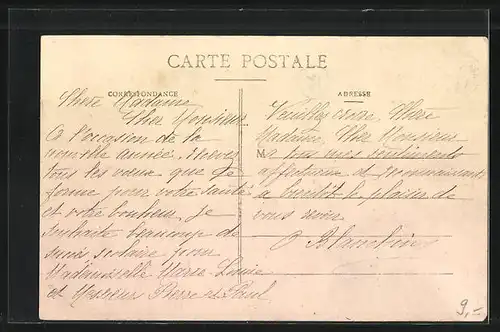 CARTE POSTALE
CORRESPONDANCE
ADRESSE
Chère Madame
Cher Monsieur
A l'occasion de la
nouvelle année, recevez
tous les vœux que je
forme pour votre santé
et votre bonheur. Je
souhaite beaucoup de
succès scolaire pour
Mademoiselle Marie-Louise
et Messieurs Pierre et Paul
Veuillez croire, Chère
Madame, Cher Monsieur
M
à tous mes sentiments
affectueux et reconnaissants
à bientôt le plaisir de
vous voir
9,-